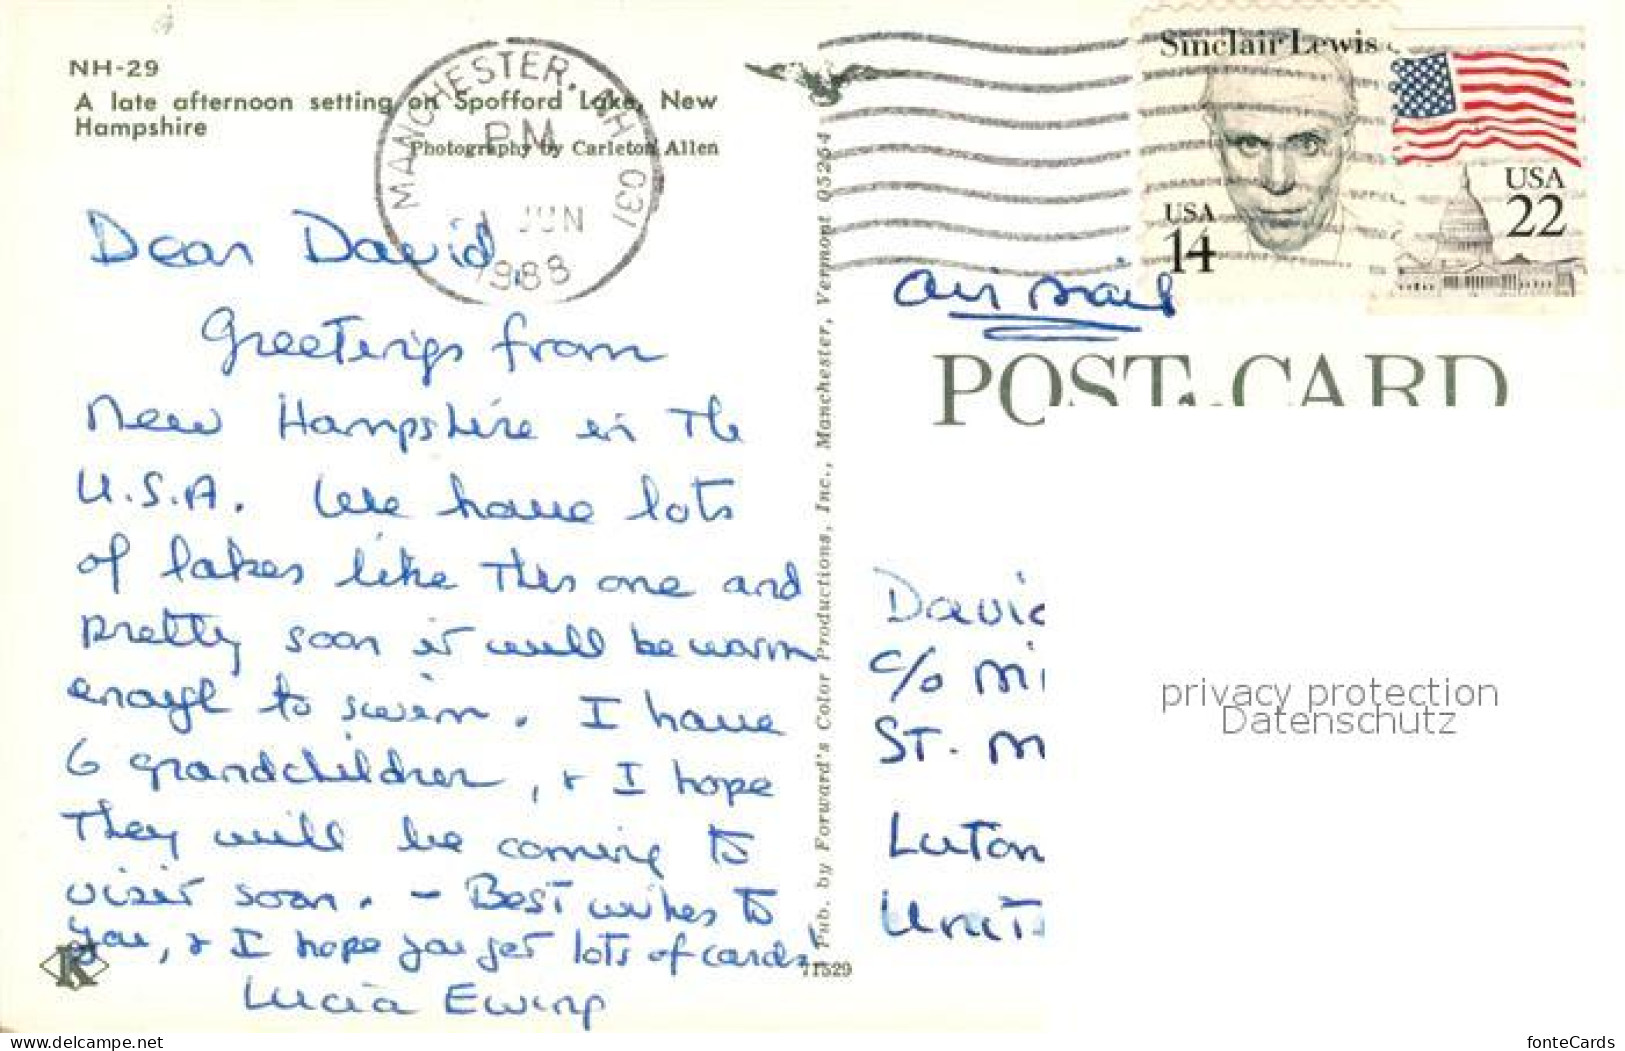 NH-29
A late afternoon setting on Spofford Lake, New
Hampshire
Photography by Carleton Allen
MANCHESTER, NH 031
PM
JUN
1988
Dear David,
Greetings from
New Hampshire in the
U.S.A. We have lots
of lakes like this one and
pretty soon it will be warm
enough to swim. I have
6 grandchildren, & I hope
they will be coming to
visit soon. - Best wishes to
you, & I hope you get lots of cards!
Lucia Ewing
K
Pub. by Forward's Color Productions, Inc., Manchester, Vermont 05254
71529
Sinclair Lewis
USA
14
USA
22
Air Mail
POST CARD
David
c/o Mi
ST. M
Luton
Unit
privacy protection
Datenschutz
www.delcampe.net
fonteCards